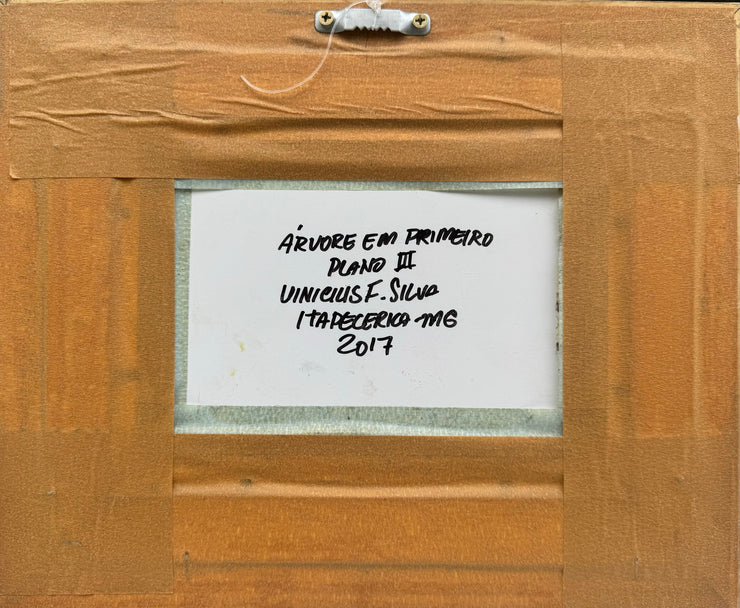 ÁRVORE EM PRIMEIRO
PLANO III
VINICIUS F. SILVA
ITAPECERICA-MG
2017